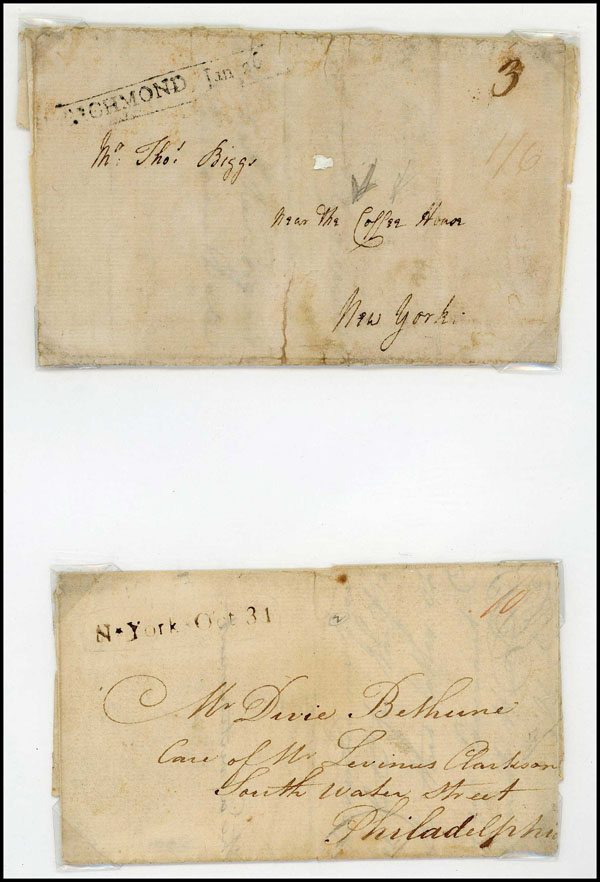 RICHMOND Jan 26
3
1/6
Mr. Thos. Biggs
Near the Coffee House
New York.
N*York*Oct 31
10
Mr Divie Bethune
Care of Mr Levinus Clarkson
South Water Street
Philadelphia